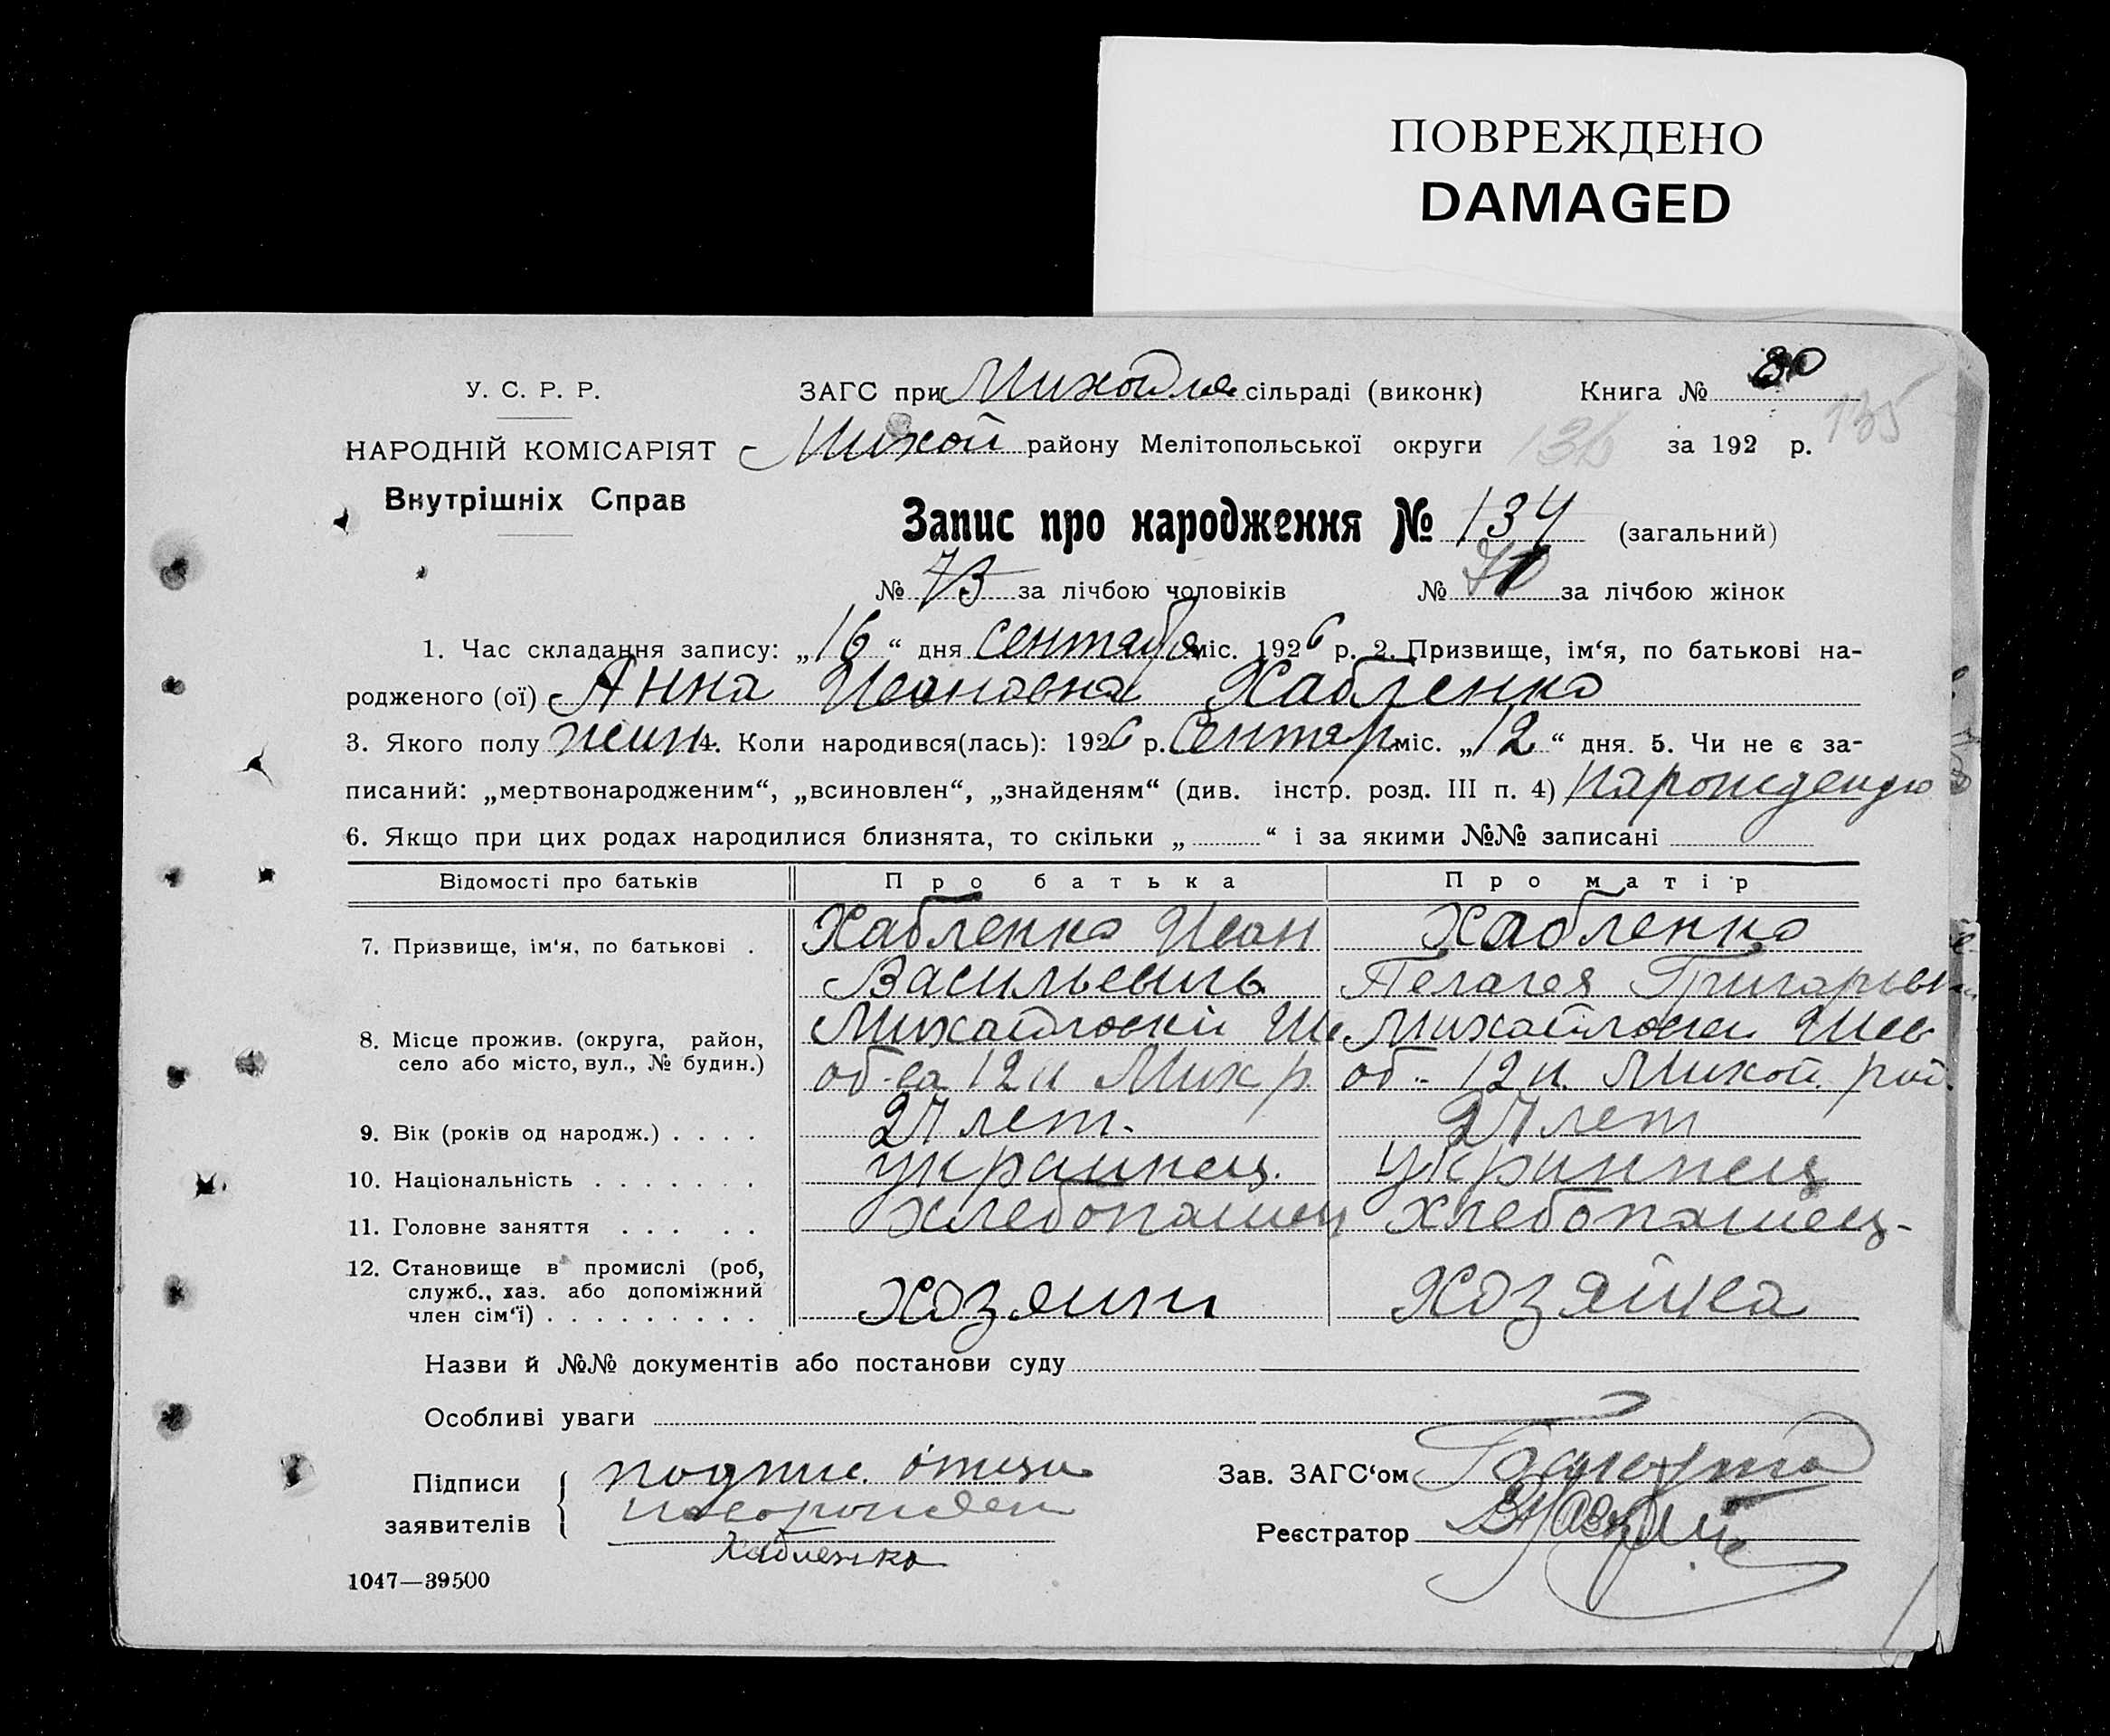 ПОВРЕЖДЕНО
DAMAGED
У. С. Р. Р.
НАРОДНІЙ КОМІСАРІЯТ
Внутрішніх Справ
ЗАГС при Михайлов сільраді (виконк) Книга № 80
Михой району Мелітопольської округи 136 за 192 р. 135
Запис про народження № 134 (загальний)
№ 73 за лічбою чоловіків № за лічбою жінок
1. Час складання запису: „16“ дня сентября міс. 1926 р. 2. Призвище, ім‘я, по батькові на-
родженого (ої) Анна Ивановна Хабленко
3. Якого полу жин 4. Коли народився(лась): 1926 р. Сентяр міс. „12“ дня. 5. Чи не є за-
писаний: „мертвонародженим“, „всиновлен“, „знайденям“ (див. інстр. розд. III п. 4)
6. Якщо при цих родах народилися близнята, то скільки „ “ і за якими №№ записані
Відомості про батьків Про батька Про матір
7. Призвище, ім‘я, по батькові . Хабленко Иван Хабленко
Васильевичь Пелагея Григорьевн
8. Місце прожив. (округа, район, село або місто, вул., № будин.)
об-ва 12 и Мих р. об- 12 и. Михой. рай.
9. Вік (років од народж.) . . . . 27 лет. 27 лет
10. Національність . . . . . . . украинец. Украинец
11. Головне заняття . . . . . хлебопашец хлебопашец-
12. Становище в промислі (роб, служб., хаз. або допоміжний член сім‘ї) . . . . . . . . . хозяин хозяйка
Назви й №№ документів або постанови суду
Особливі уваги
Підписи заявителів
подпис. отца
Хабленко
Зав. ЗАГС‘ом
Реєстратор
1047—39500